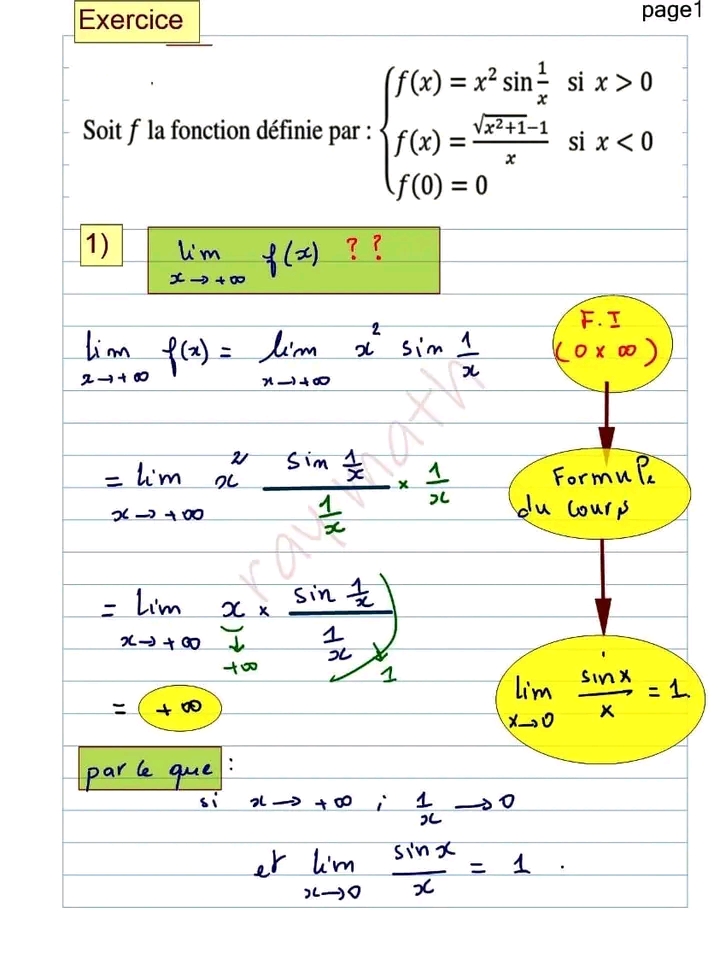 page1
Exercice
Soit f la fonction définie par :
f(x) = x² sin 1/x si x > 0
f(x) = (√(x²+1)-1)/x si x < 0
f(0) = 0
1)
lim x→+∞ f(x) ??
F.I
(0 × ∞)
lim x→+∞ f(x) = lim x→+∞ x² sin 1/x
= lim x→+∞ x² (sin 1/x)/(1/x) × 1/x
Formule
du cours
= lim x→+∞ x × (sin 1/x)/(1/x)
↓ +∞
↓ 1
lim x→0 sin x/x = 1
= +∞
par le que :
si x → +∞ ; 1/x → 0
et lim x→0 sin x/x = 1 .
ray math